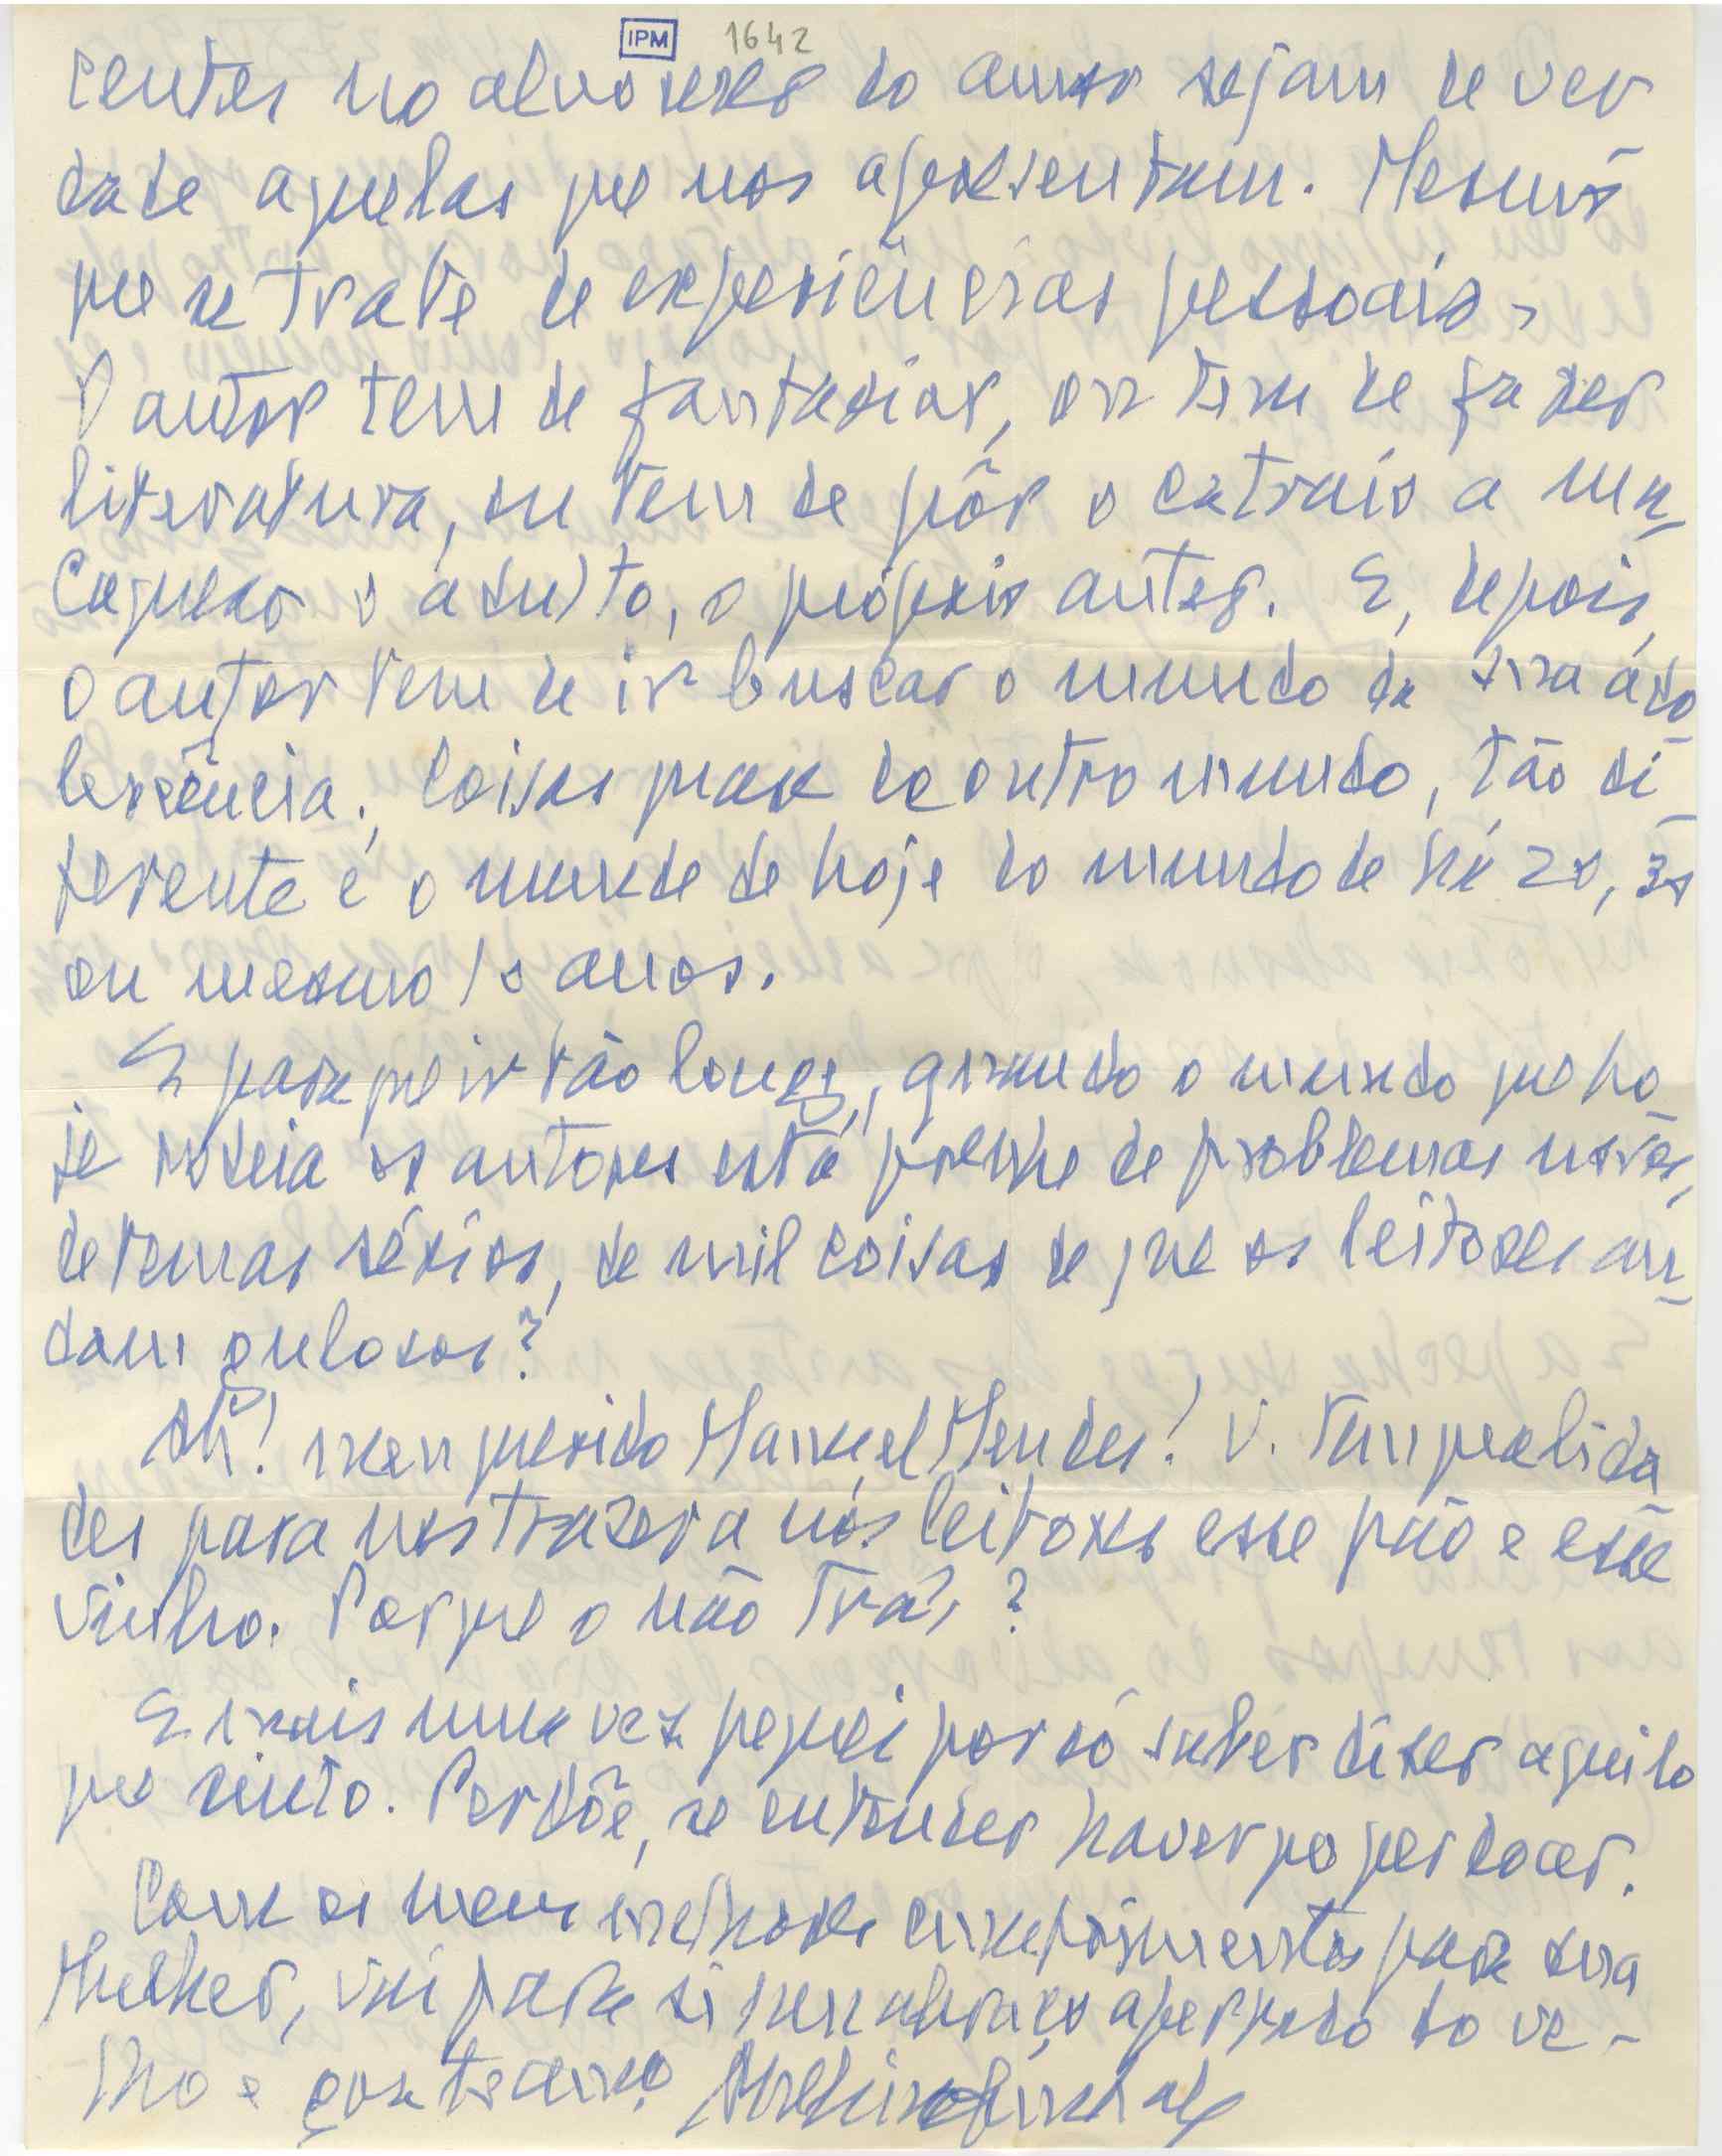 IPM 1642
centes no alvorecer do amor sejam de ver
dade aquelas que nos apresentam. Mesmo
que se trate de experiências pessoais,
O autor tem de fantasiar, ou tem de fazer
literatura, ou tem de pôr o catraio a un
Capucar o adulto, o próprio autor. E, depois,
o autor tem de ir buscar o mundo da sua ado
lescência. Coisas quase de outro mundo, tão di
ferente é o mundo de hoje do mundo de há 20, 30
ou mesmo 10 anos.
E para que ir tão longe, quando o mundo que ho
je rodeia os autores está prenhe de problemas novos,
de temas sérios, de mil coisas de que os leitores an
dam gulosos?
Ah! meu querido Manuel Mendes! V. tem qualida
des para nos trazer a nós leitores esse pão e esse
vinho. Porque o não traz?
E mais uma vez pequei por só saber dizer aquilo
que sinto. Perdõe, se entender haver que perdoar.
Com os meus melhores cumprimentos para sua
Mulher, vai para si um abraço apertado do ve-
lho e grato amigo